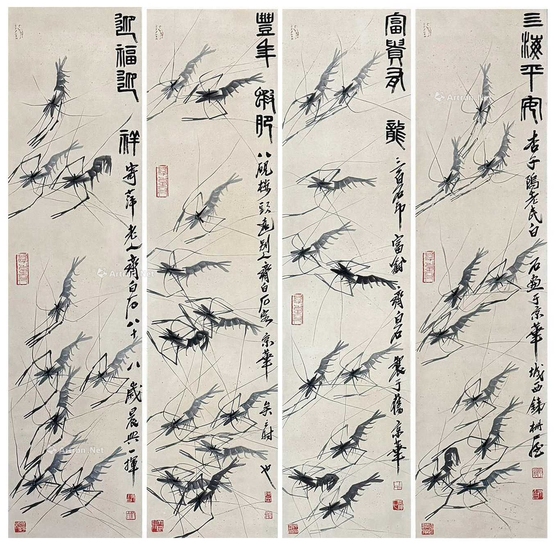 三海平安
杏子隖老民白石画于京華城西鐵柵屋
富貴有龍
三百石印富翁齊白石製于舊京華
豐年蝦肥
八硯樓頭遠別人齊白石客京華矣 也
迎福迎祥
寄萍老人齊白石八十八歲晨興一揮